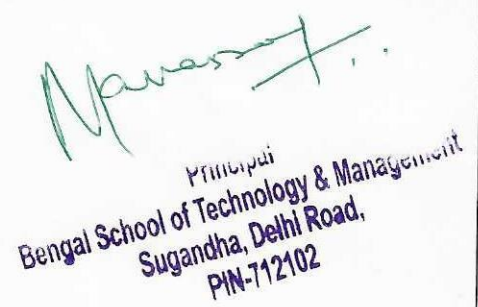 Principal
Bengal School of Technology & Management
Sugandha, Delhi Road,
PIN-712102